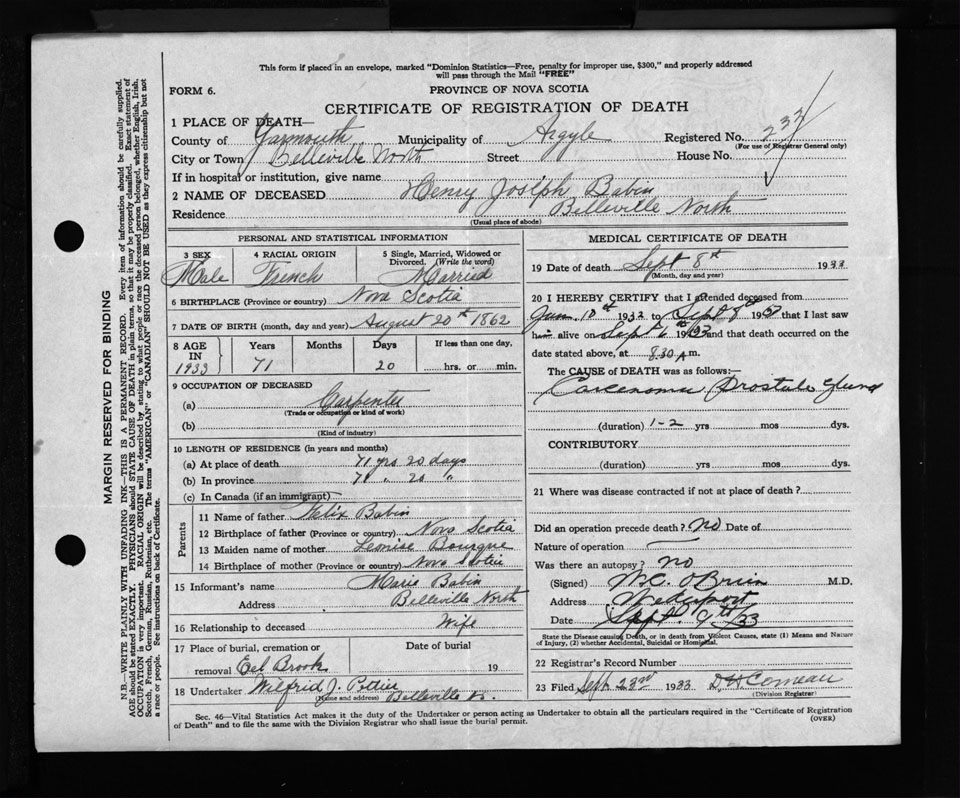 This form if placed in an envelope, marked "Dominion Statistics—Free, penalty for improper use, $300," and properly addressed
will pass through the Mail "FREE"
FORM 6.
PROVINCE OF NOVA SCOTIA
CERTIFICATE OF REGISTRATION OF DEATH
1 PLACE OF DEATH—
County of Yarmouth Municipality of Argyle Registered No. 233
(For use of Registrar General only)
City or Town Belleville North Street House No.
If in hospital or institution, give name
2 NAME OF DECEASED Henry Joseph Babin
Residence Belleville North
(Usual place of abode)
PERSONAL AND STATISTICAL INFORMATION
3 SEX 4 RACIAL ORIGIN 5 Single, Married, Widowed or
Divorced. (Write the word)
Male French Married
6 BIRTHPLACE (Province or country) Nova Scotia
7 DATE OF BIRTH (month, day and year) August 20th 1862
8 AGE Years Months Days If less than one day,
IN
1933 71 20 hrs. or min.
9 OCCUPATION OF DECEASED
(a) Carpenter
(Trade or occupation or kind of work)
(b)
(Kind of industry)
10 LENGTH OF RESIDENCE (in years and months)
(a) At place of death 71 yrs 20 days
(b) In province 71 " 20 "
(c) In Canada (if an immigrant)
Parents
11 Name of father Felix Babin
12 Birthplace of father (Province or country) Nova Scotia
13 Maiden name of mother Leonise Bourque
14 Birthplace of mother (Province or country) Nova Scotia
15 Informant's name Marie Babin
Address Belleville North
16 Relationship to deceased Wife
17 Place of burial, cremation or Date of burial
removal Eel Brook 19
18 Undertaker Wilfrid J. Pottier
(Name and address) Belleville
MEDICAL CERTIFICATE OF DEATH
19 Date of death Sept 8th 1933
(Month, day and year)
20 I HEREBY CERTIFY that I attended deceased from
to Sept 8th that I last saw
h alive on Sept 6th and that death occurred on
date stated above, at 8.30 A m.
The CAUSE of DEATH was as follows:—
Carcenoma Prostate Gland
(duration) 1-2 yrs mos dys.
CONTRIBUTORY
(duration) yrs mos dys.
21 Where was disease contracted if not at place of death?
Did an operation precede death? no Date of
Nature of operation —
Was there an autopsy? no
(Signed) O'Brien M.D.
Address Wedgeport
Date Sept. 9th/33
State the Disease causing Death, or in death from Violent Causes, state (1) Means and Nature
of Injury, (2) whether Accidental, Suicidal or Homicidal.
22 Registrar's Record Number
23 Filed Sept 23rd 1933 Comeau
(Division Registrar)
Sec. 46—Vital Statistics Act makes it the duty of the Undertaker or person acting as Undertaker to obtain all the particulars required in the "Certificate of Registration
of Death" and to file the same with the Division Registrar who shall issue the burial permit. (OVER)
MARGIN RESERVED FOR BINDING
N.B.—WRITE PLAINLY WITH UNFADING INK—THIS IS A PERMANENT RECORD. Every item of information should be carefully supplied.
AGE should be stated EXACTLY. PHYSICIANS should STATE CAUSE OF DEATH in plain terms, so that it may be properly classified. Exact statement of
OCCUPATION is very important. RACIAL ORIGIN will be described by stating to what people or race the deceased person belonged, whether English, Irish,
Scotch, French, German, Russian, Ruthenian, etc. The terms "AMERICAN" or "CANADIAN" SHOULD NOT BE USED as they express citizenship but not
a race or people. See instructions on back of Certificate.